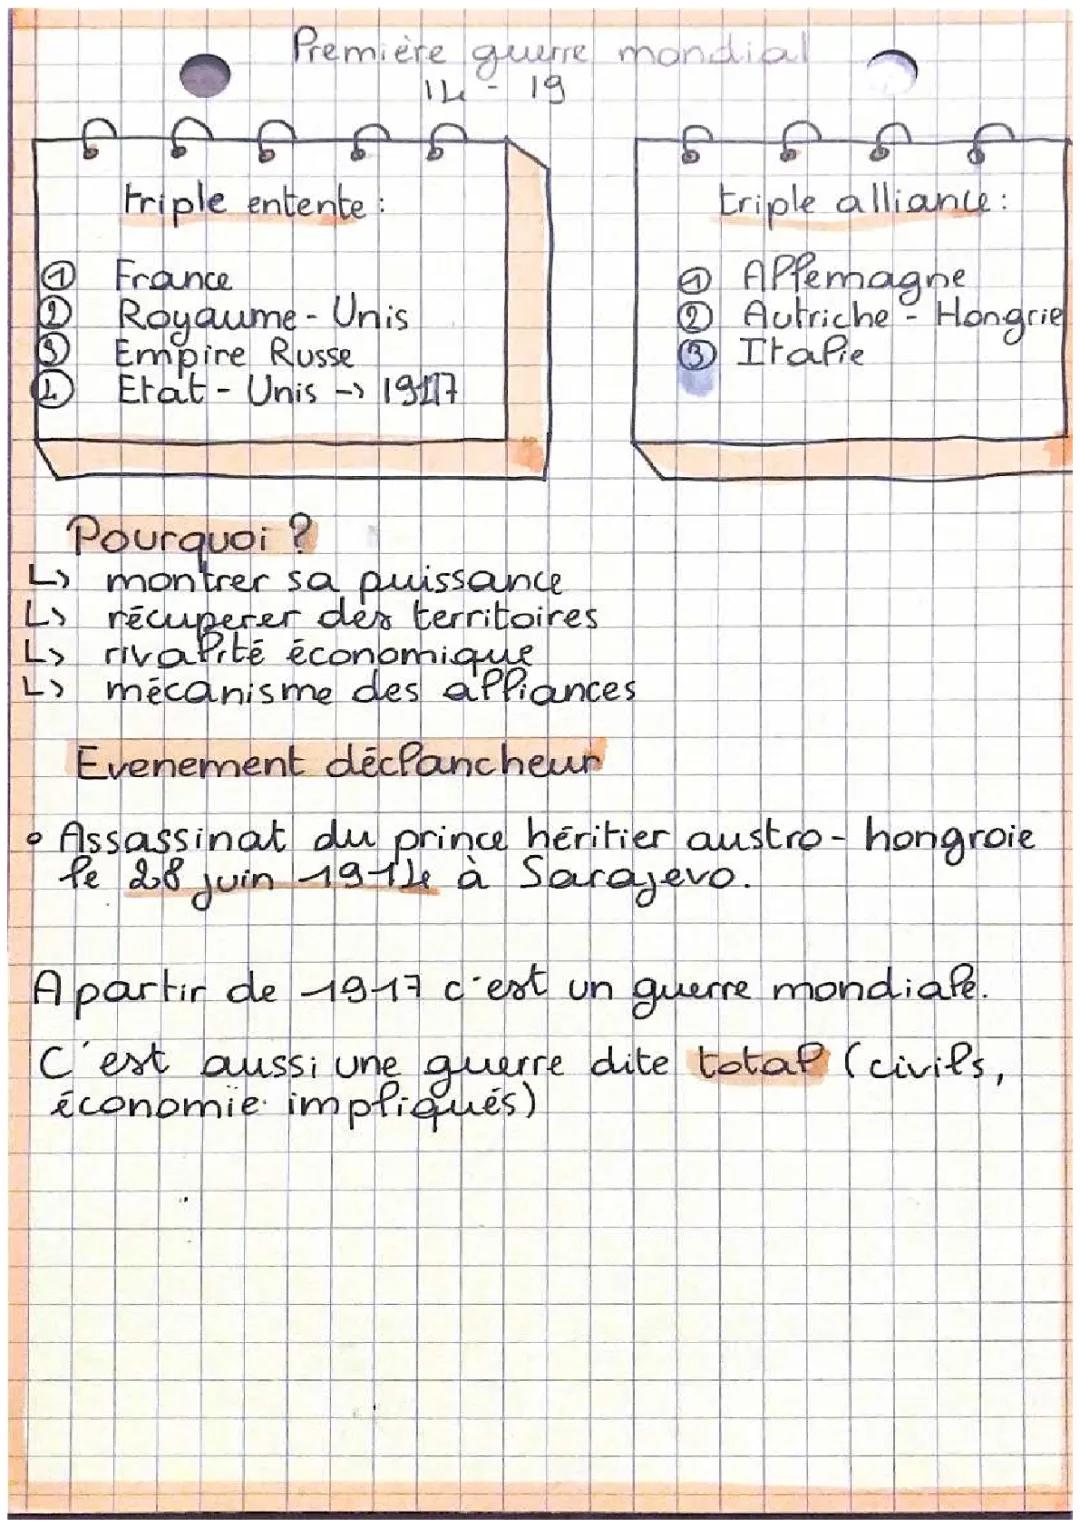 Première guerre mondial
14 - 19
triple entente :
① France
② Royaume - Unis
③ Empire Russe
④ Etat - Unis -> 1917
triple alliance :
① Allemagne
② Autriche - Hongrie
③ Italie
Pourquoi ?
↳ montrer sa puissance
↳ récuperer des territoires
↳ rivalité économique
↳ mécanisme des alliances
Evenement déclancheur
• Assassinat du prince héritier austro - hongroie
le 28 juin 1914 à Sarajevo.
A partir de 1917 c'est un guerre mondiale.
C'est aussi une guerre dite total (civils,
économie impliqués)